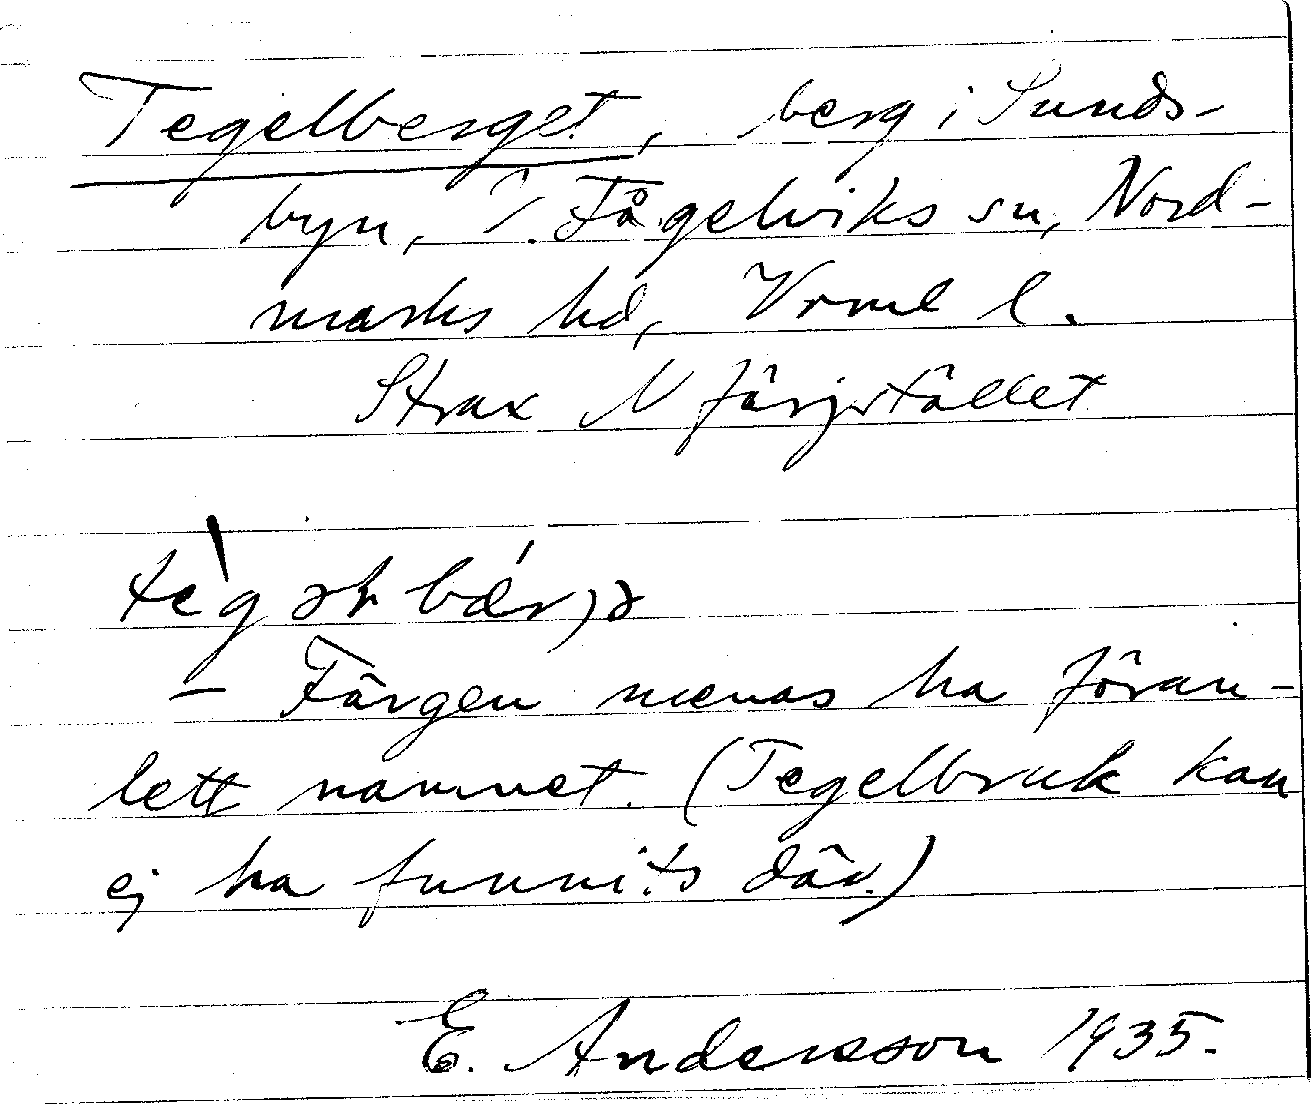 Tegelberget, berg i Sunds-
byn, T. Fågelviks sn, Nord-
marks hd, Vrml l.
Strax N färjstället
tégəl bǽrjə
– Färgen menas ha föran-
lett namnet. (Tegelbruk kan
ej ha funnits där.)
E. Andersson 1935.